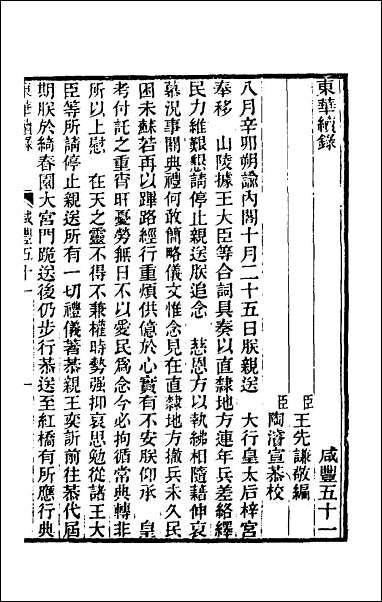 東華續錄
咸豐五十一
臣王先謙敬編
臣陶濬宣恭校
八月辛卯朔諭內閣十月二十五日朕親送　大行皇太后梓宮
奉移　山陵據王大臣等合詞具奏以直隸地方連年兵差絡繹
民力維艱懇請停止親送朕追念　慈恩方以執紼相隨藉伸哀
慕況事關典禮何敢簡略儀文惟念見在直隸地方撤兵未久民
困未蘇若再以蹕路經行重煩供億於心實有不安朕仰承　皇
考付託之重宵旰憂勞無日不以愛民爲念今必拘循常典轉非
所以上慰　在天之靈不得不兼權時勢强抑哀思勉從諸王大
臣等所請停止親送所有一切禮儀著恭親王奕訢前往恭代屆
期朕於綺春園大宮門跪送後仍步行恭送至紅橋有所應行典
東華續錄　咸豐五十一　一